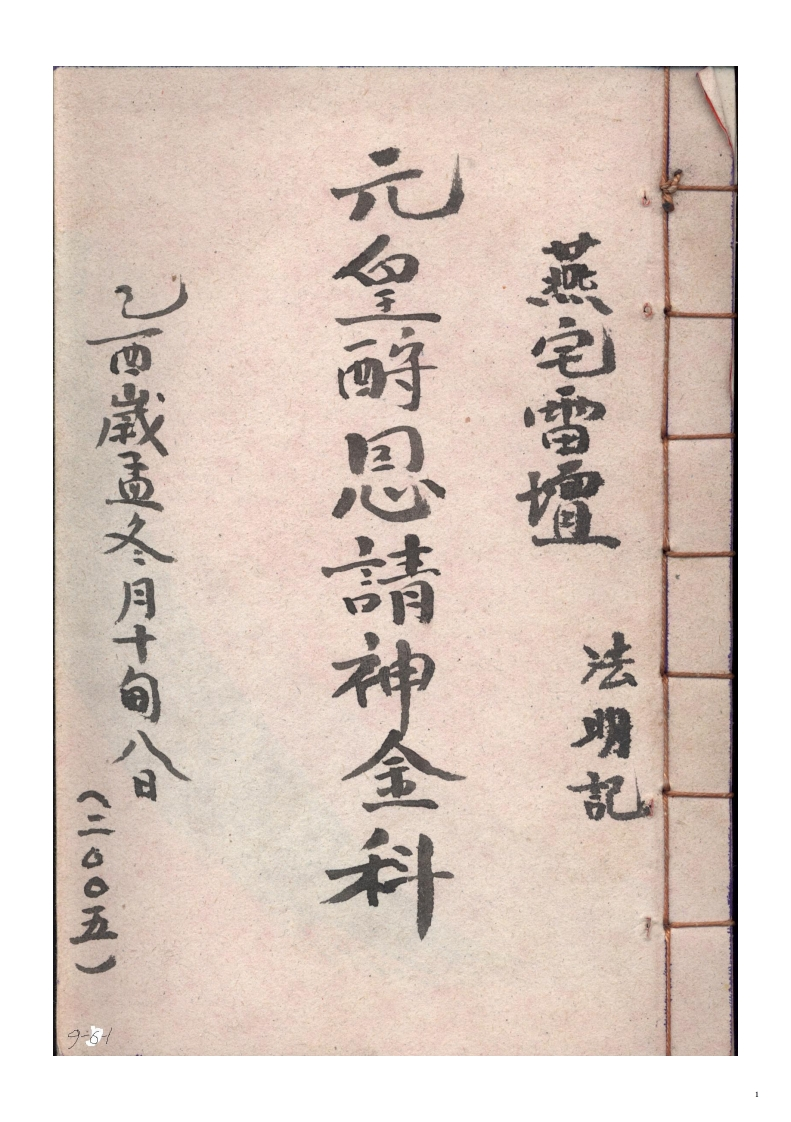 燕宅雷壇　法明記
元皇酧恩請神金科
乙酉歲孟冬月十旬八日
（二００五）
9-6-1
1